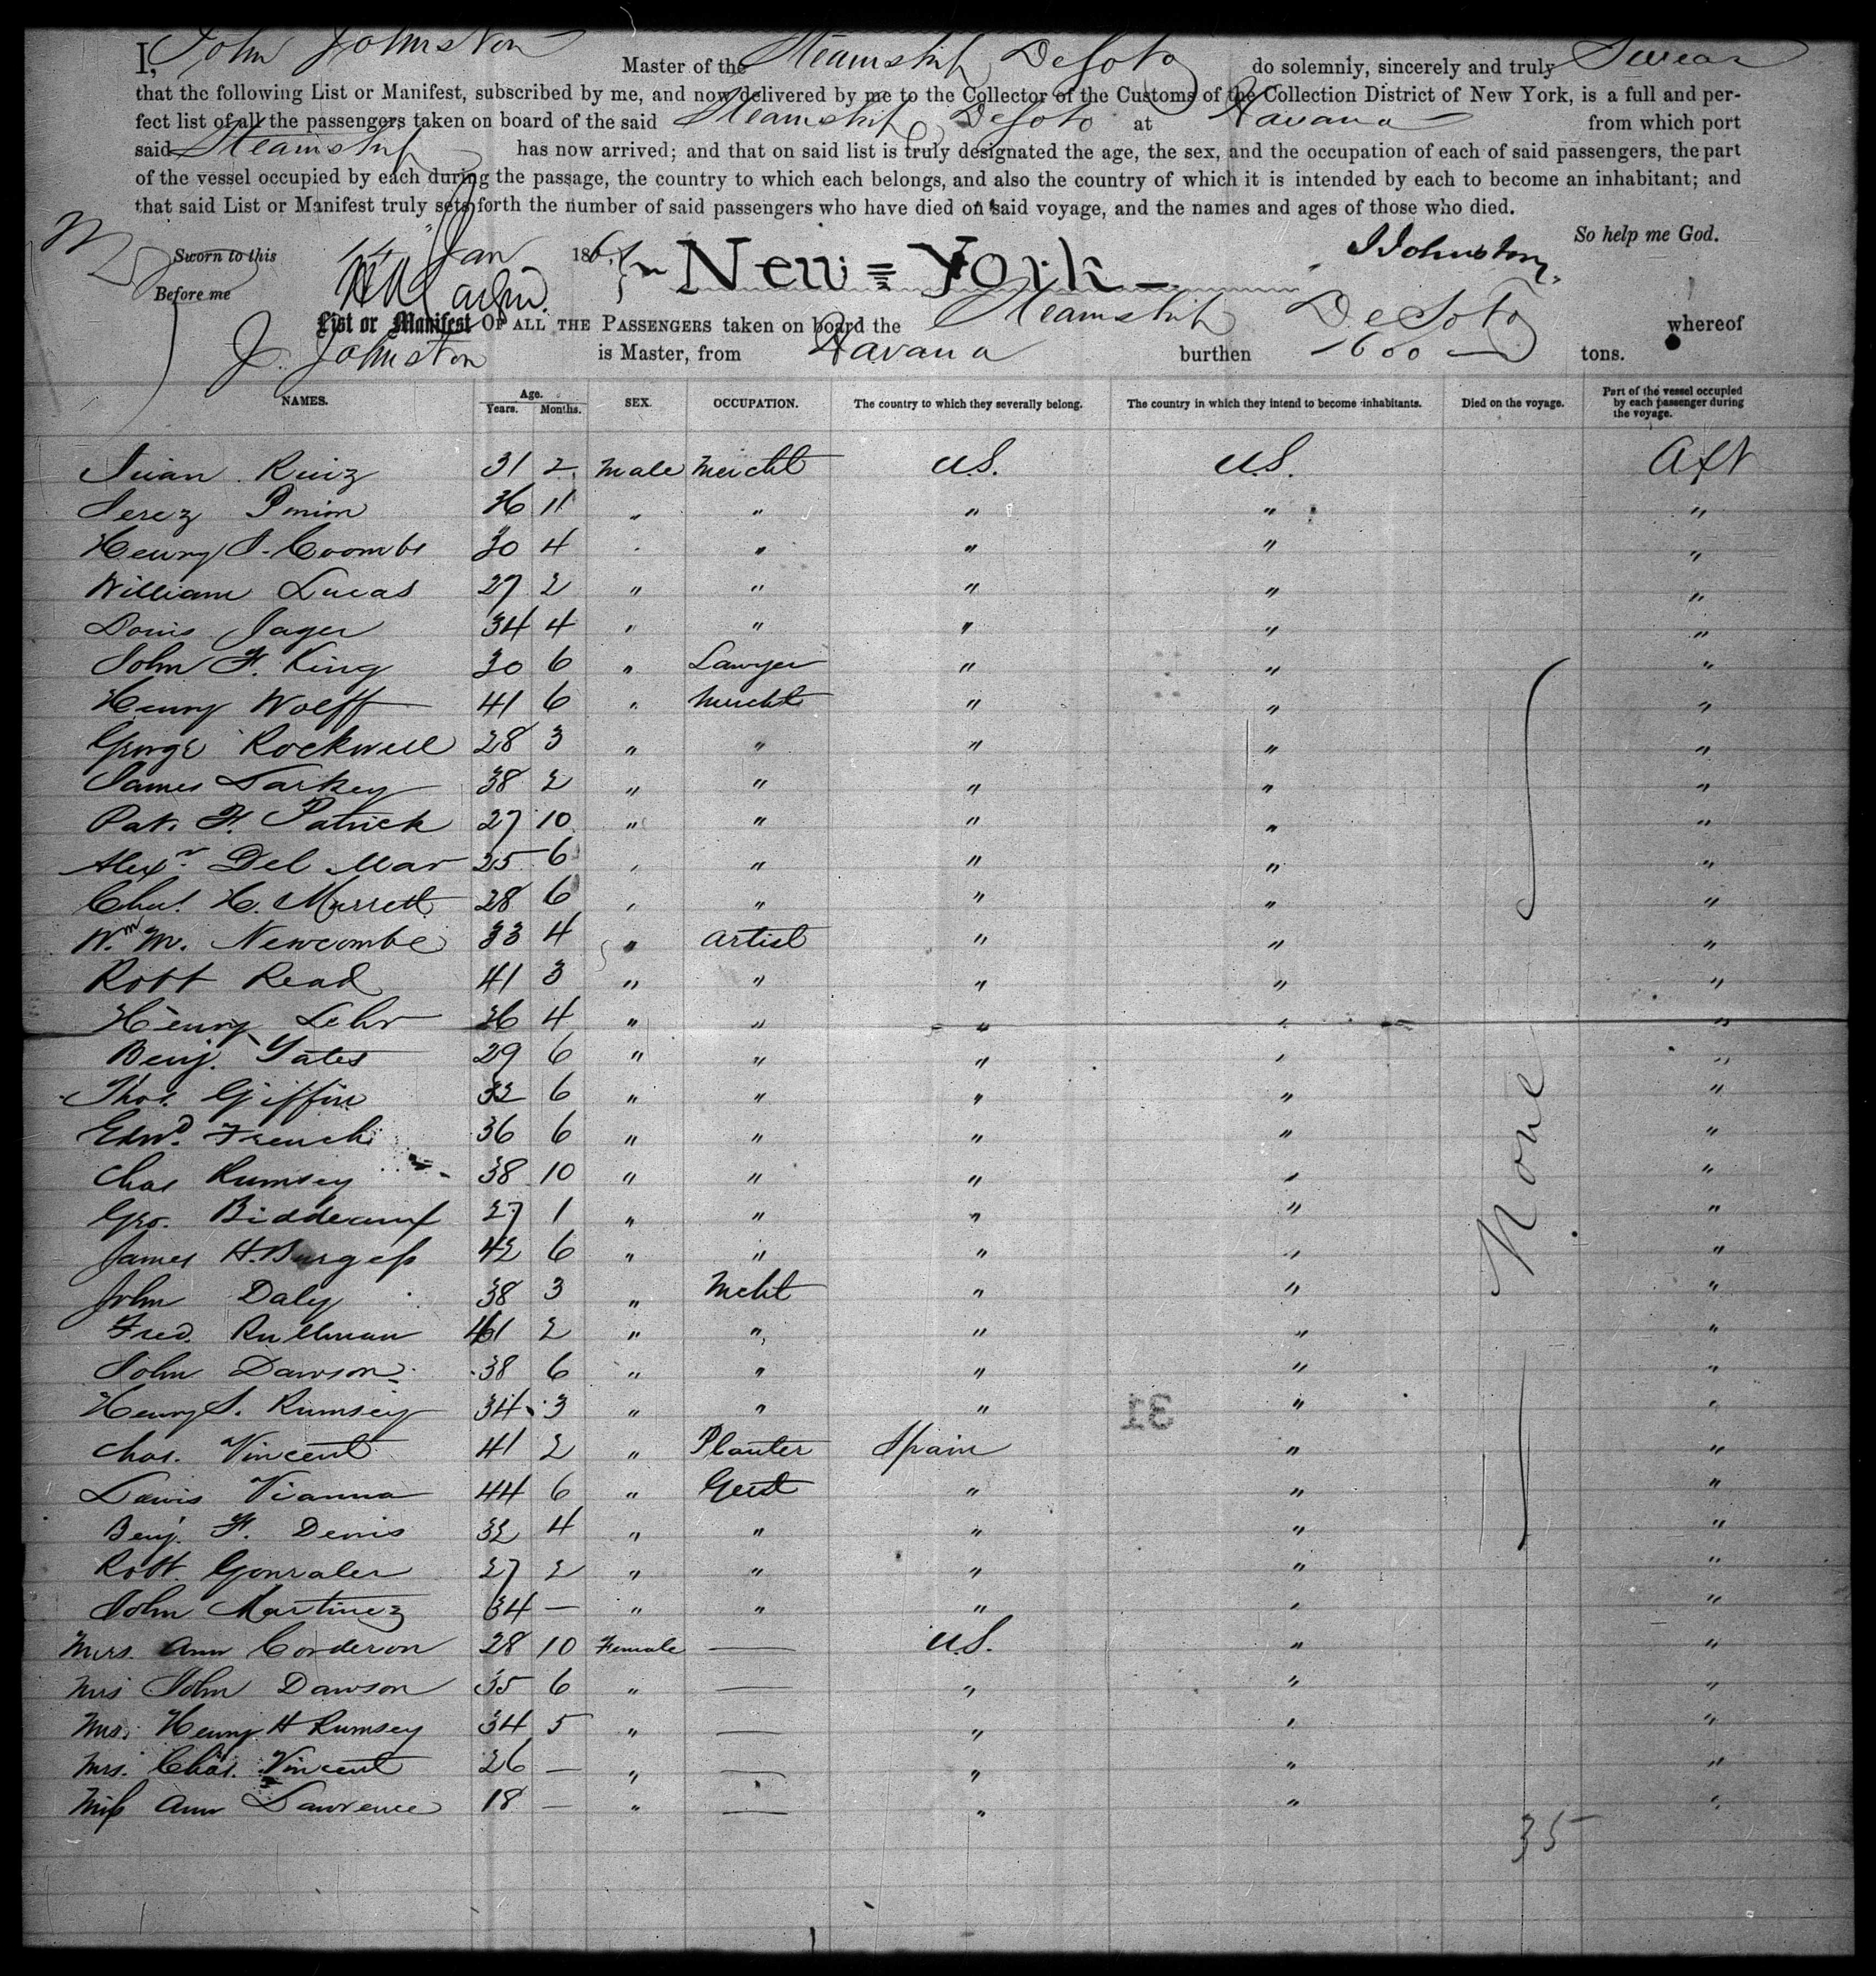 I, John Johnston Master of the Steamship DeSoto do solemnly, sincerely and truly Swear
that the following List or Manifest, subscribed by me, and now delivered by me to the Collector of the Customs of the Collection District of New York, is a full and per-
fect list of all the passengers taken on board of the said Steamship DeSoto at Havana from which port
said Steamship has now arrived; and that on said list is truly designated the age, the sex, and the occupation of each of said passengers, the part
of the vessel occupied by each during the passage, the country to which each belongs, and also the country of which it is intended by each to become an inhabitant; and
that said List or Manifest truly sets forth the number of said passengers who have died on said voyage, and the names and ages of those who died.
So help me God.
Sworn to this 14 Jan 186 New=York— J Johnston
Before me
List or Manifest OF ALL THE PASSENGERS taken on board the Steamship DeSoto whereof
J. Johnston is Master, from Havana burthen 1600 tons.
NAMES. Age. Years. Months. SEX. OCCUPATION. The country to which they severally belong. The country in which they intend to become inhabitants. Died on the voyage. Part of the vessel occupied by each passenger during the voyage.
Juan Ruiz 31 2 Male Mercht U.S. U.S. Aft
36 11 " " " " "
Henry S. Coombs 30 4 " " " " "
William Lucas 27 2 " " " " "
Louis Jager 34 4 " " " " "
John F. King 30 6 " Lawyer " " "
Henry Wolff 41 6 " Mercht " " "
George Rockwell 28 3 " " " " "
James Larkey 38 2 " " " " "
Pat. F. Patrick 27 10 " " " " "
Alexr Del Mar 25 6 " " " " "
Chas. H. Murrett 28 6 " " " " "
Wm M. Newcombe 33 4 " Artist " " "
Robt Read 41 3 " " " " "
Henry Lehr 36 4 " " " " "
Benj. Yates 29 6 " " " " "
Thos. Giffin 32 6 " " " " "
Edwd. French 36 6 " " " " "
Chas Rumsey 38 10 " " " " None "
Geo. 27 1 " " " " "
James H. Burgess 42 6 " " " " "
John Daly 38 3 " Mcht " " "
Fred. Rullman 41 2 " " " " "
John Dawson 38 6 " " " " "
Henry S. Rumsey 34 3 " " " " "
31
Chas. Vincent 41 2 " Planter Spain " "
Lewis Vianna 44 6 " Gent " " "
Benj. F. Denis 32 4 " " " " "
Robt. Gonzales 27 2 " " " " "
John Martinez 34 — " " " " "
Mrs. Ann Corderon 28 10 Female — U.S. " "
Mrs John Dawson 35 6 " — " " "
Mrs. Henry H Rumsey 34 5 " — " " "
Mrs. Chas. Vincent 26 — " — " " "
Miss Ann Lawrence 18 — " — " " "
35